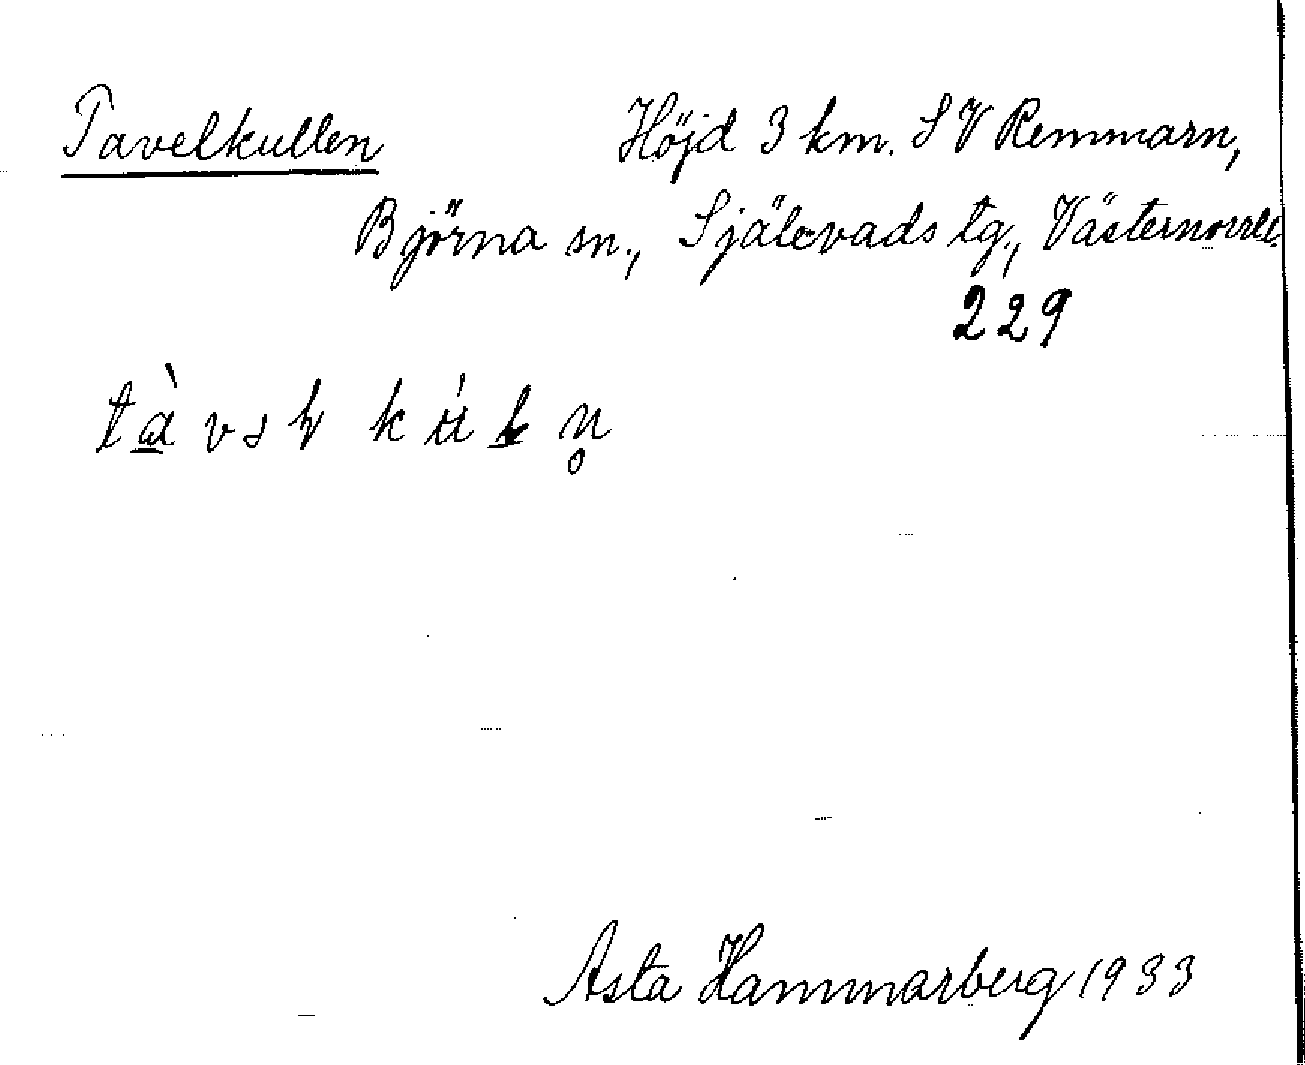 Tavelkullen Höjd 3 km. SV Remmarn,
Björna sn., Själevads tg., Västernorrl.
229
Asta Hammarberg 1933